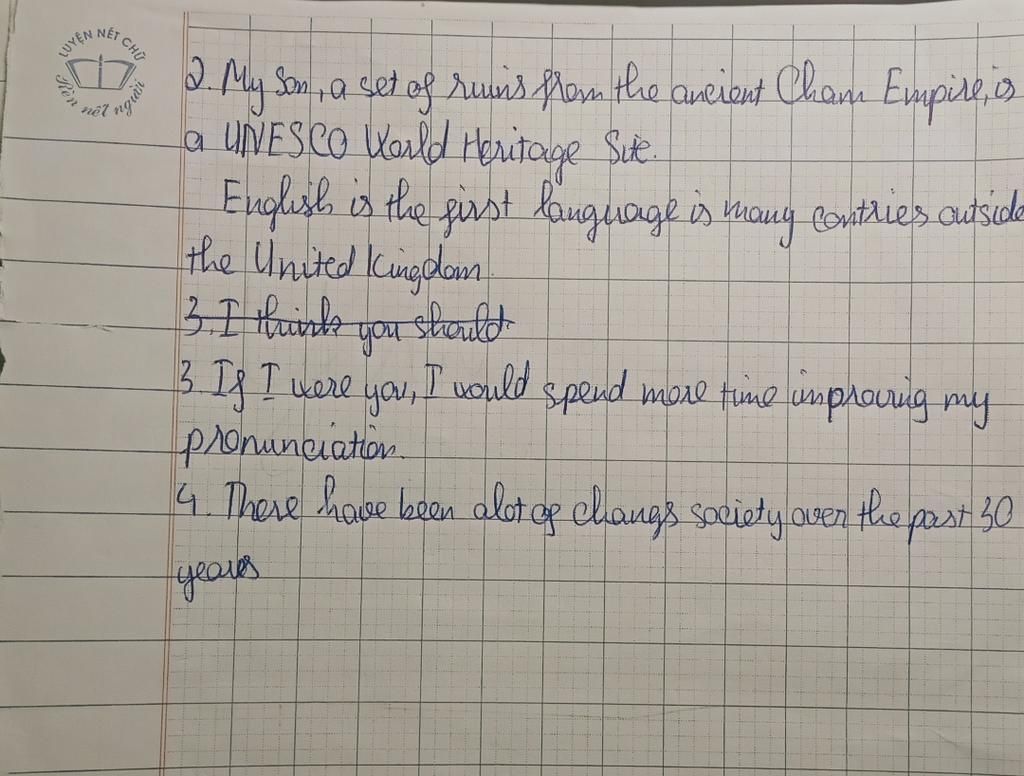 LUYỆN NÉT CHỮ
Rèn nết người
2. My Son, a set of ruins from the ancient Cham Empire, is
a UNESCO World Heritage Site.
English is the first language is many contries outside
the United Kingdom.
3. I think you should
3. If I were you, I would spend more time improving my
pronunciation.
4. There have been alot of changs society over the past 30
years